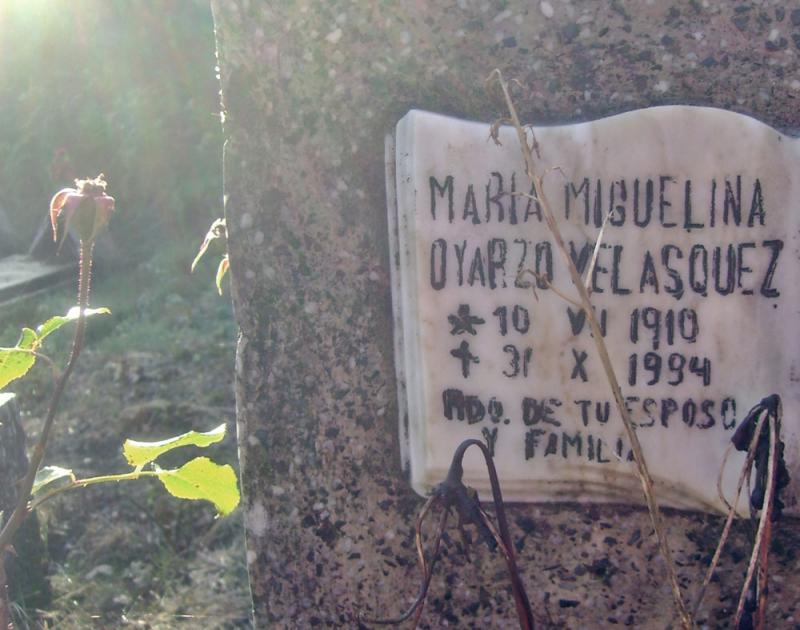 MARIA MIGUELINA
OYARZO VELASQUEZ
* 10 VI 1910
✝ 31 X 1994
RDO. DE TU ESPOSO
Y FAMILIA